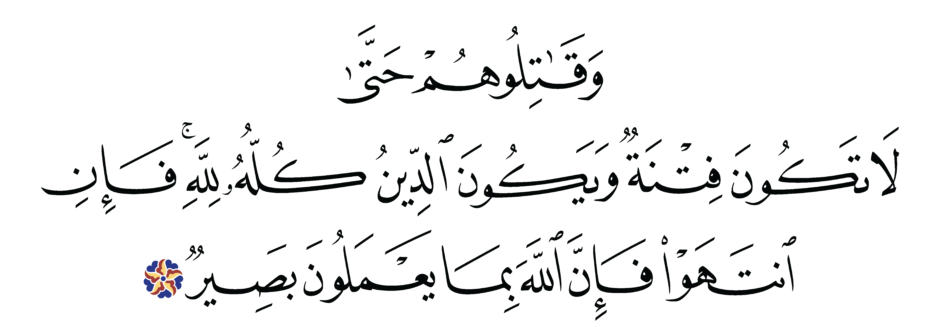 وَقَٰتِلُوهُمْ حَتَّىٰ
لَا تَكُونَ فِتْنَةٌ وَيَكُونَ ٱلدِّينُ كُلُّهُۥ لِلَّهِ ۚ فَإِنِ
ٱنتَهَوْا۟ فَإِنَّ ٱللَّهَ بِمَا يَعْمَلُونَ بَصِيرٌ